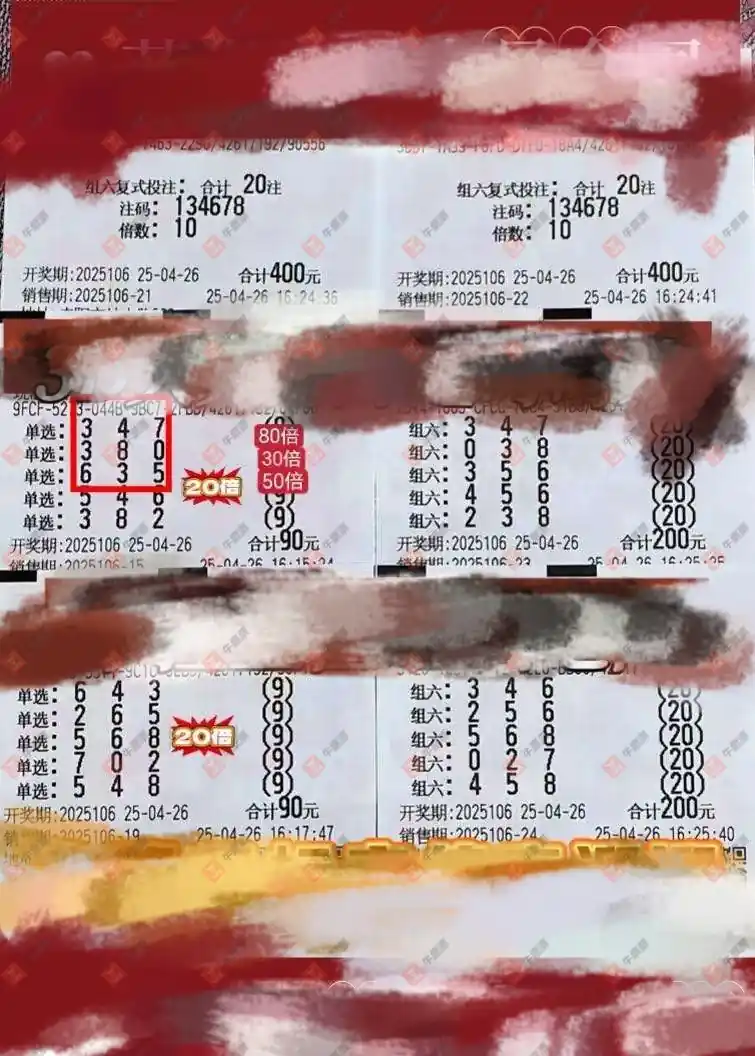 组六复式投注: 合计 20注
注码: 134678
倍数: 10
开奖期:2025106 25-04-26 合计400元
销售期:2025106-21 25-04-26 16:24:36
组六复式投注: 合计 20注
注码: 134678
倍数: 10
开奖期:2025106 25-04-26 合计400元
销售期:2025106-22 25-04-26 16:24:41
单选: 3 4 7
单选: 3 8 0
单选: 6 3 5
单选: 5 4 6 (9)
单选: 3 8 2 (9)
80倍
30倍
50倍
20倍
开奖期:2025106 25-04-26 合计90元
销售期:2025106-15 25-04-26 16:15:24
组六: 3 4 7 (20)
组六: 0 3 8 (20)
组六: 3 5 6 (20)
组六: 4 5 6 (20)
组六: 2 3 8 (20)
开奖期:2025106 25-04-26 合计200元
销售期:2025106-23 25-04-26 16:25:25
单选: 6 4 3 (9)
单选: 2 6 5 (9)
单选: 5 6 8 (9)
单选: 7 0 2 (9)
单选: 5 4 8 (9)
20倍
开奖期:2025106 25-04-26 合计90元
销 2025106-19 25-04-26 16:17:47
组六: 3 4 6 (20)
组六: 2 5 6 (20)
组六: 5 6 8 (20)
组六: 0 2 7 (20)
组六: 4 5 8 (20)
开奖期:2025106 25-04-26 合计200元
销售期:2025106-24 25-04-26 16:25:40